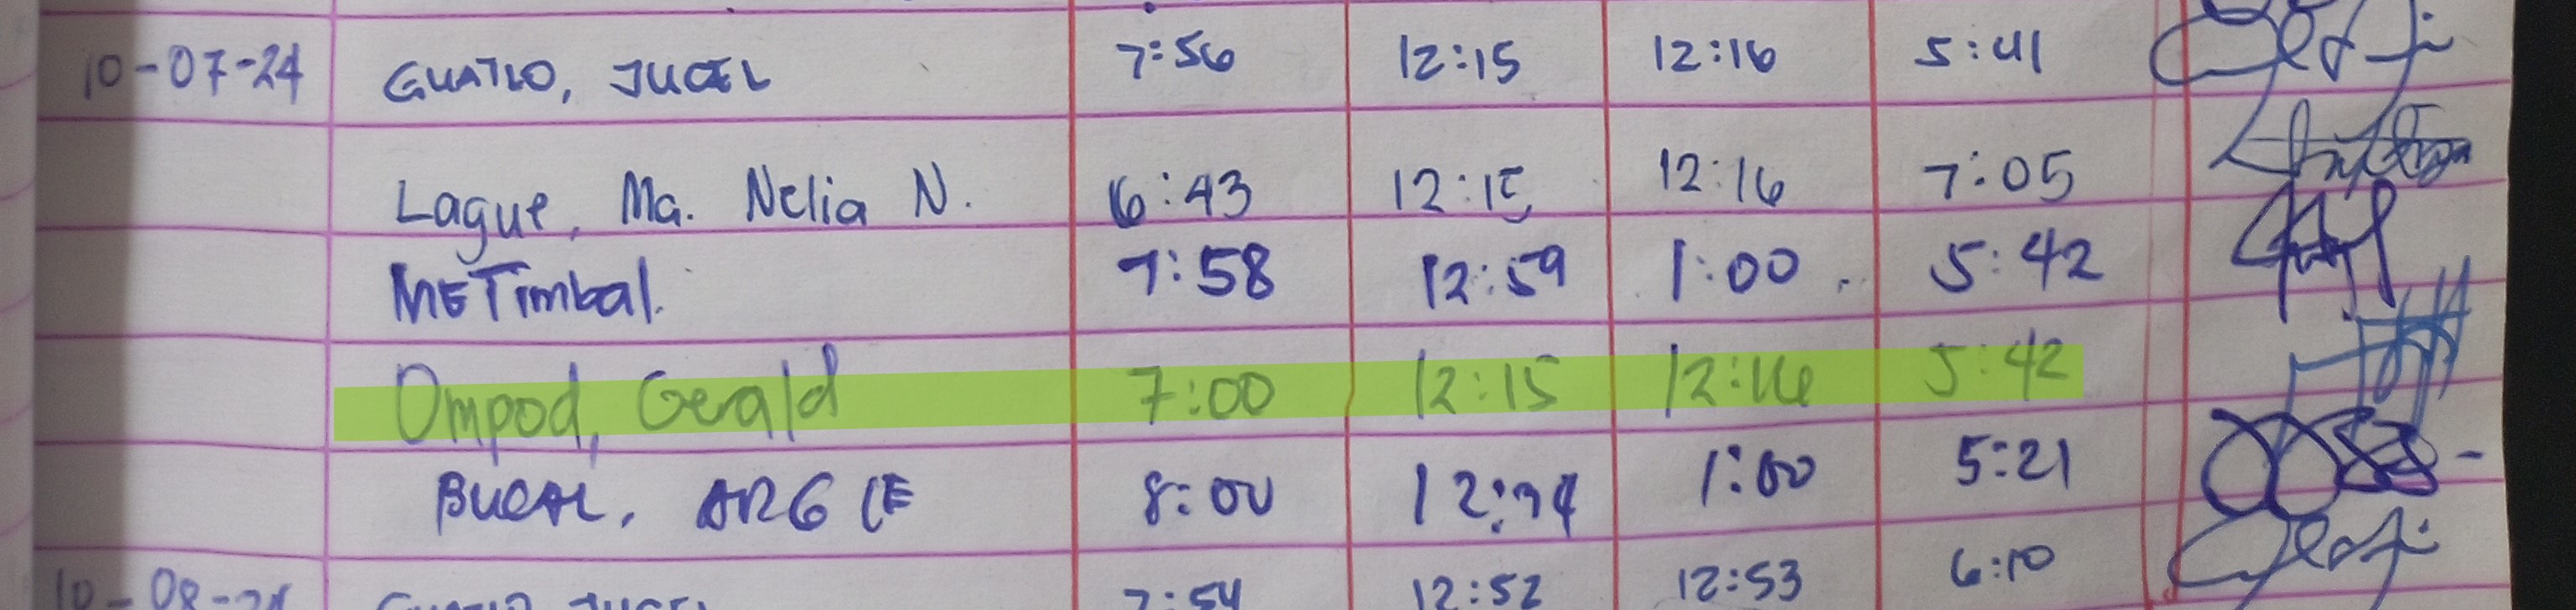 10-07-24 GUATLO, JUCEL 7:56 12:15 12:16 5:41
Lague, Ma. Nelia N. 6:43 12:15 12:16 7:05
METimbal. 7:58 12:59 1:00 5:42
Ompod, Gerald 7:00 12:15 12:16 5:42
BUCAL, ARGIE 8:00 1:00 5:21
10-08-24 GUATLO JUCEL 7:54 12:52 12:53 6:10